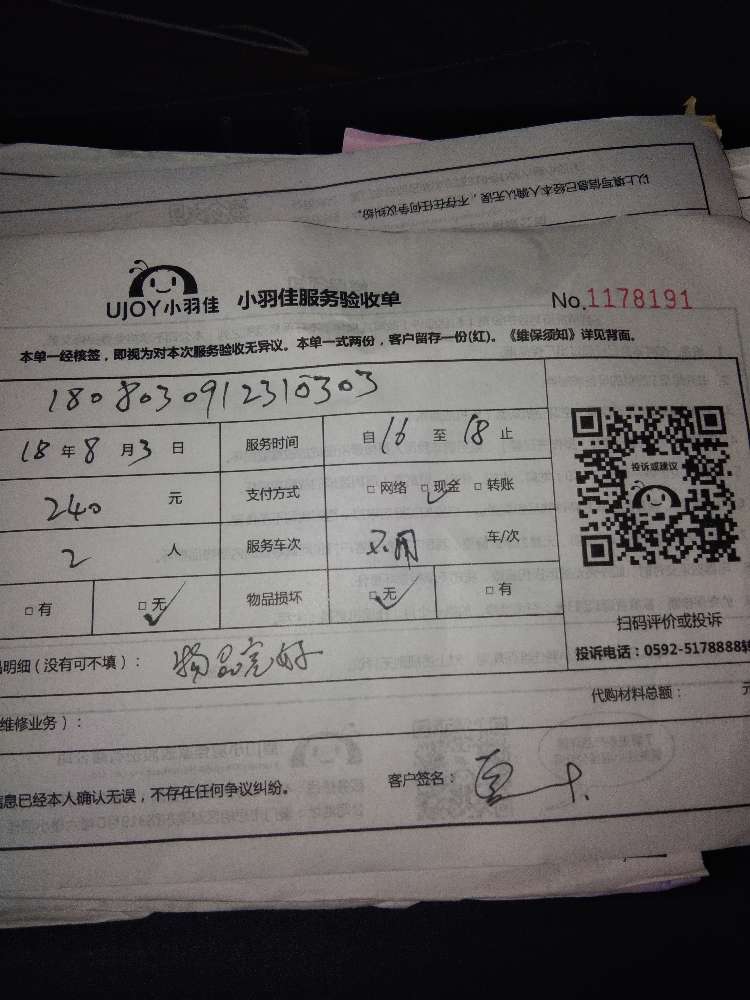 以上填写信息已经本人确认无误，不存在任何争议纠纷。
UJOY小羽佳 小羽佳服务验收单 No.1178191
本单一经核签，即视为对本次服务验收无异议。本单一式两份，客户留存一份(红)。《维保须知》详见背面。
180803091231 0303
18年8月3日 服务时间 自16至18止
240元 支付方式 □网络 □现金 □转账
投诉或建议
2人 服务车次 不用 车/次
□有 □无 物品损坏 □无 □有
扫码评价或投诉
明细(没有可不填)： 物品完好
投诉电话：0592-5178888转
代购材料总额： 元
维修业务)：
信息已经本人确认无误，不存在任何争议纠纷。 客户签名：